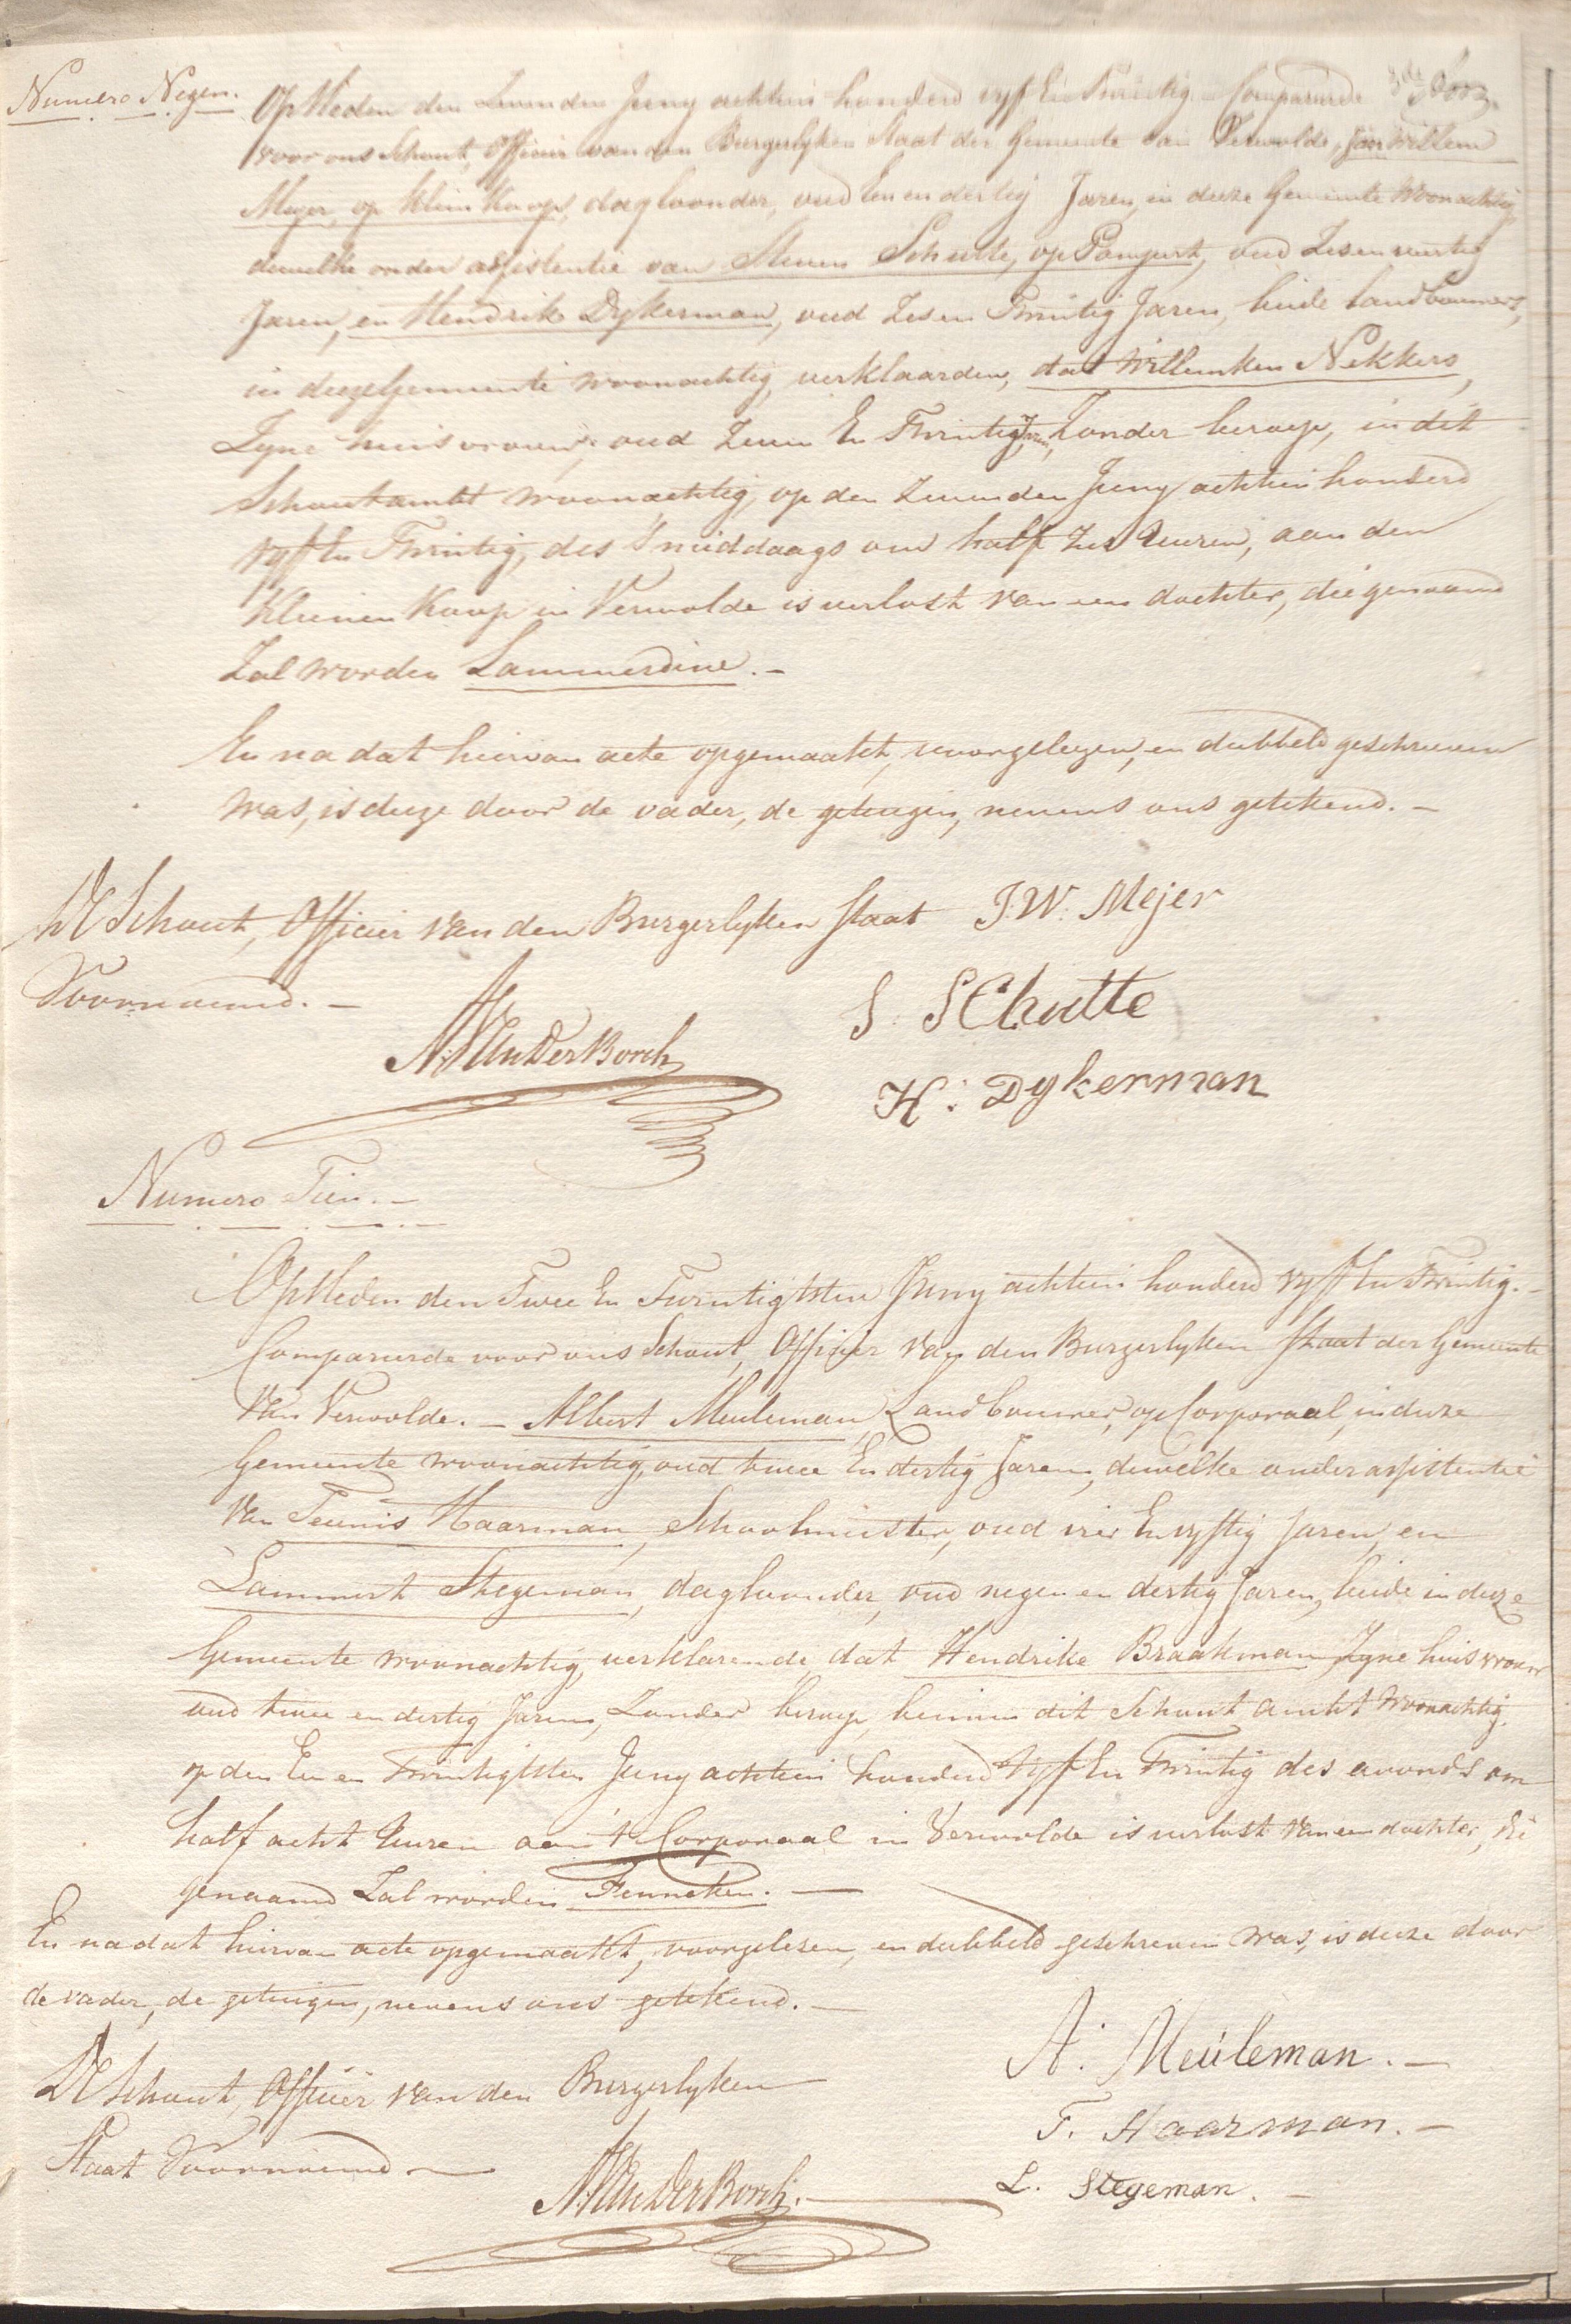 Numero Negen.
Op Heden den Zevenden Juny achttien honderd vyf En Twintig Compareerde
voor ons Schout, Officier van den Burgerlyken Staat der Gemeente van Verwolde, Jan Willem
Meyer, op klein Kaap, dagloonder, oud Een en dertig Jaren, in deeze Gemeente Woonachtig,
dewelke onder assistentie van Steven Schutte, op Pongert, oud Zes en veertig
Jaren, en Hendrik Dykerman, oud Zes en Twintig Jaren, beide landbouwers,
in deeze Gemeente woonachtig, verklaarden, dat Willemken Nekkers,
Zyne huisvrouw, oud Zeven En Twintig Jaren, Zonder beroep, in dit
Schoutambt woonachtig, op den Zevenden Juny achttien honderd
vyf En Twintig, des s'middaags om half Zes Uuren, aan den
kleinen Kaap in Verwolde is verlost van een dochter, die genaamd
Zal worden Lammerdine. -
En na dat hiervan acte opgemaakt, voorgelezen, en dubbeld geschreven
was, is deeze door de vader, de getuigen, nevens ons getekend. -
De Schout, Officier van den Burgerlyken Staat J. W. Mejer
Voornoemd. -
S. SChutte
A. VanDerBorch
H. Dykerman
Numero Tien. -
Op Heden den Twee En Twintigsten Juny achttien honderd vyf En Twintig. -
Compareerde voor ons Schout, Officier van den Burgerlyken Staat der Gemeente
van Verwolde. - Albert Meuleman, Landbouwer, op Corporaal, in deeze
Gemeente woonachtig, oud twee En dertig Jaren, dewelke onder assistentie
van Teunis Haarman, Schoolmeester, oud vier En vyftig Jaren, en
Lammert Stegeman, dagloonder, oud negen en dertig Jaren, beide in deeze
Gemeente woonachtig, verklarende, dat Hendrike Braakman Zyne huisvrouw
oud twee en dertig Jaren, Zonder beroep, binnen dit Schout ambt Woonachtig,
op den Een en Twintigsten Juny achttien honderd vyf En Twintig des avonds om
half acht Uuren aan 't Corporaal in Verwolde is verlost van een dochter, die
genaamd Zal worden Fenneken. -
En nadat hiervan acte opgemaakt, voorgelesen, en dubbeld geschreven was, is deeze door
de vader, de getuigen, nevens ons getekend. -
De Schout, Officier van den Burgerlyken
A. Meuleman. -
Staat Voornoemd -
T. Haarman. -
A. VanDerBorch. -
L. Stegeman. -